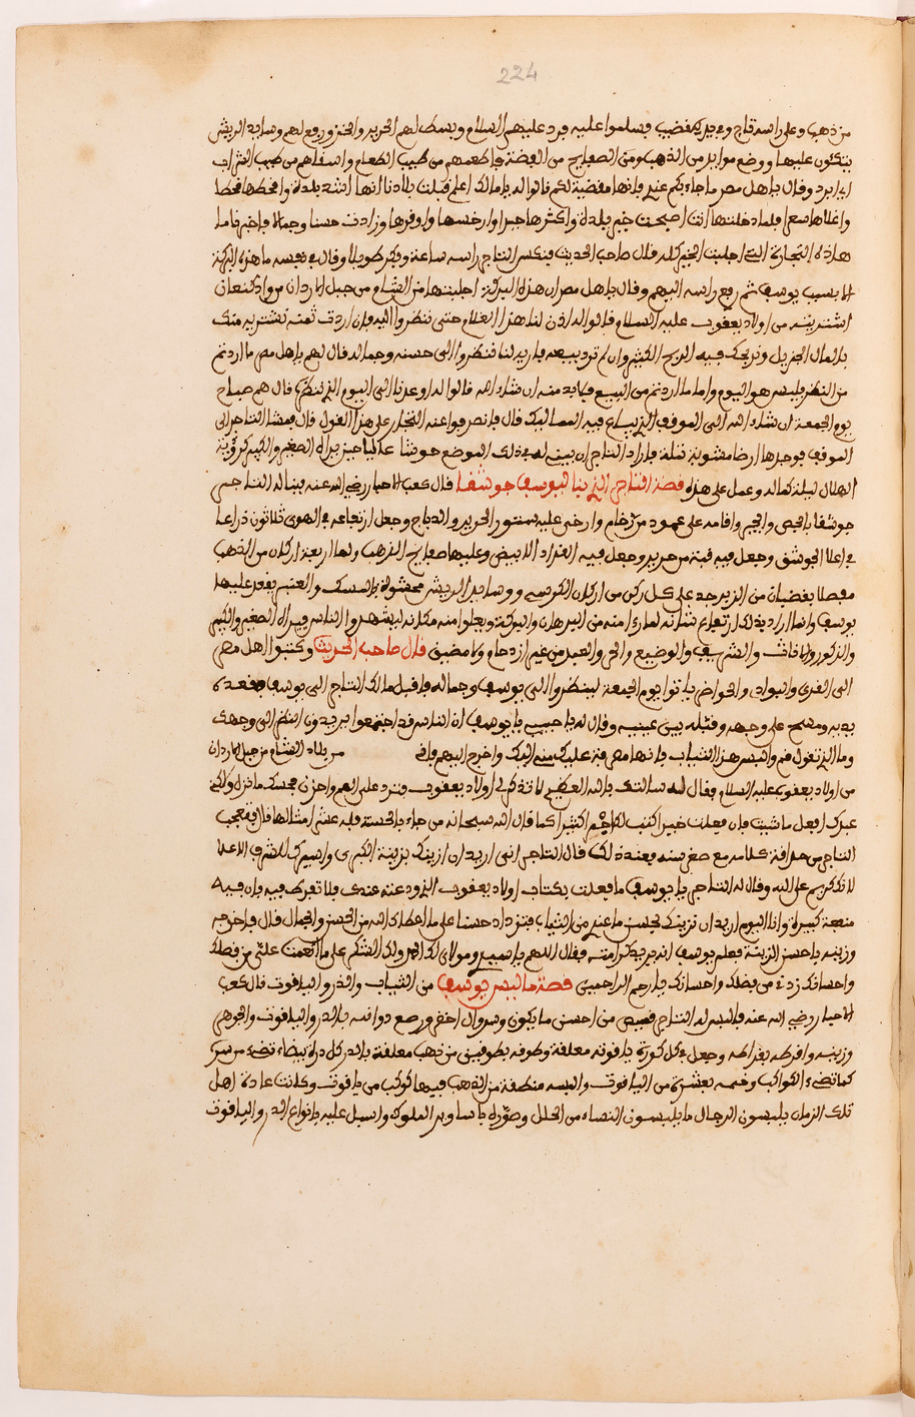 224
من ذهب وعلى راسه تاج وفي يده قضيب فسلموا عليه فرد عليهم السلام وبسط لهم الحرير والخز ورفع لهم وسايد الريش
يتكون عليها ووضع موايد من الذهب ومن الصفايح من الفضة فاطعمهم من طيب الطعام واسقاهم من طيب الشراب
وقال ياهل مصر ما جاء بكم عندي فانها مقضية لكم قالوا له يا مالك اعلم قبلت بلادنا انها اشد بلدة واقحطها قحطا
واغلاها سعرا فلما دخلتها انت اصبحت خير بلدة واكثرها خيرا وارخسها واوفرها وزادت حسنا وجمالا فاخبرنا ما
هاذه التجارة التي اجلبت الخير كله قال صاحب الحديث فنكس التاجر راسه ساعة وفكر طويلا وقال في نفسه ما هذه البركة
الا بسبب يوسف ثم رفع راسه اليهم وقال ياهل مصر ان هذه البركة اجلبتها من الشام من جبل الاردان من واد كنعان
اشتريته من اولاد يعقوب عليه السلام قالوا له اذن لنا هذا الغلام حتى ننظروا اليه فان اردت ثمنه نشتريه منك
بالمال الجزيل ونربحك فيه الربح الكثير وان لم تريد بيعه فاريه لنا ننظروا الى حسنه وجماله قال لهم ياهل مصر ما اردتم
من النظر فليس هو اليوم واما ما اردتم من البيع فلا بد منه ان شاء الله قالوا له اوعدنا الى اليوم الذي ننظره قال هم صباح
يوم الجمعة ان شاء الله الى الموقف الذي يباع فيه المماليك قال فانصرفوا عنه التجار على هذا القول قال فمشا التاجر الى
الموقف فوجدها ارضا مشوبة فاراد التاجر ان يبني له في ذلك الموضع جوشقا عاليا حيز يراه الصغير والكبير كرؤية
الهلال ليلة كماله وعمل على هذه قصة التاجر الذي بنا ليوسف جوشقا قال كعب الاحبار رضي الله عنه بنا له التاجر
جوشقا بالجص والاجر واقامه على عمود من رخام وارخى عليه ستور الحرير والدباج وجعل ارتفاعه في الهوى ثلاثون ذراعا
في اعلا الجوشق وجعل فيه قبة من حرير وجعل فيه الابيض وعليها صفايح الذهب ولها اربعة اركان من الذهب
مفصلا بقضبان من الزبرجد على كل ركن من اركان الكرسي ووسايد الريش محشوة بالمسك والعنبر يقعد عليها
يوسف وانما اراد بذلك ارتفاع شانه لما رى منه من البرهان والبركة ويعلوا منه مكانه ليشهدوا الناس ويراه الصغير والكبير
والذكور والاناث والشريف والوضيع والحر والعبد من غير ازدحام ولا مضيق قال صاحب الحديث وكتبوا اهل مصر
الى القرى والبواد والحواضر ياتوا يوم الجمعة لينظروا الى يوسف وجماله فاقبل مالك التاجر الى يوسف
يديه ومسح على وجهه وقبله بين عينيه وقال له يا حبيب يا يوسف ان الناس قد اجتمعوا يريدون النظر الى وجهك
وما الذي تقول قم والبس هذا الثياب فانها مصرفة عليك واخرج اليهم فاني من بلاد الشام من جبل الاردان
من اولاد يعقوب عليه السلام فقال له سالتك بالله العظيم لا تذكر لي اولاد يعقوب فنزد على الهم واحزن
عبدك افعل ما شيت فان فعلت خيرا كتب لك اجرا كثيرا كما قال الله سبحانه من جاء بالحسنة فله عشر امثالها قال فتعجب
التاجر من صداقة كلامه مع صغر سنه فعند ذلك قال التاجر انى اريد ان ازينك بزينة الكبرى
وقال له التاجر يا يوسف ما فعلت بكتاب اولاد يعقوب الذي
منفعة كبيرة وانا اليوم اريد ان نزينك بحلس ما عندي من الثياب فتزداد حسنا على ما اعطاك الله من الحسن والجمال قال فاخرجه
وزينه باحسن الزينة فعلم يوسف انه يريد كرامته فقال اللهم يا سيدي ومولاي لك الحمد ولك الشكر على ما انعمت علي من فضلك
واحسانك زدني من فضلك واحسانك يا ارحم الراحمين قصة ما لبس يوسف من الثياب والدر والياقوت قال كعب
الاحبار رضي الله عنه فالبس له التاجر قميص من احسن ما يكون وسروال اخضر ورصع ذوائبه بالدر والياقوت والجوهر
وزينه واقرطه بقراطه وجعل في كل كورة ياقوتة معلقة وطوقه بطوقين من ذهب معلقة بالدر كل درة بيضاء تضيء
كما تضيء الكواكب وختمه بعشرة من الياقوت والبسه منطقة من الذهب فيها كوكب من ياقوت وكانت عادة اهل
تلك الزمان يلبسون الرجال ما يلبسون النساء من الحلل وسوره باساوير الملوك واسبل عليه بانواع الدر والياقوت